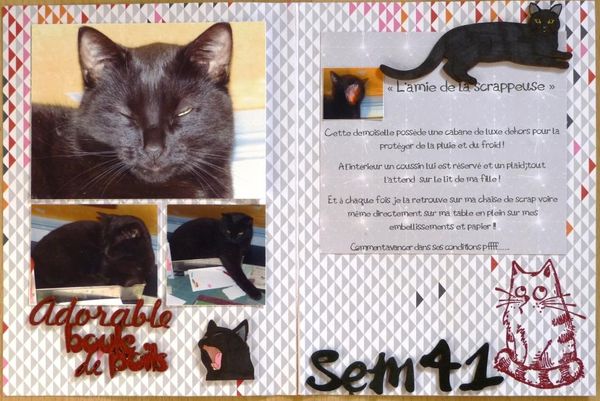 « L'amie de la scrappeuse »
Cette demoiselle possède une cabane de luxe dehors pour la
protéger de la pluie et du froid !
A l'interieur un coussin lui est réservé et un plaid,tout
l'attend sur le lit de ma fille !
Et à chaque fois je la retrouve sur ma chaise de scrap voire
même directement sur ma table en plein sur mes
embellissements et papier !!
Commentavancer dans ses conditions pffff......
Adorable
boule
de poils
sem 41